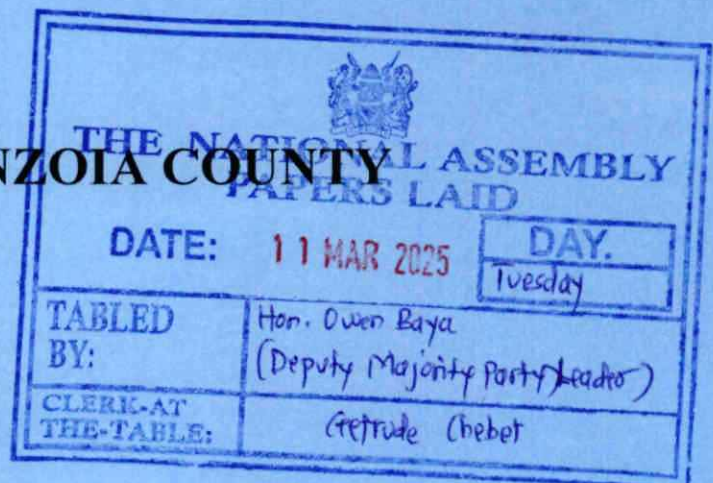 THE NATIONAL ASSEMBLY
NZOIA COUNTY
PAPERS LAID
DATE: 11 MAR 2025 DAY.
Tuesday
TABLED BY: Hon. Owen Baya
(Deputy Majority Party Leader)
CLERK-AT THE-TABLE: Getrude Chebet